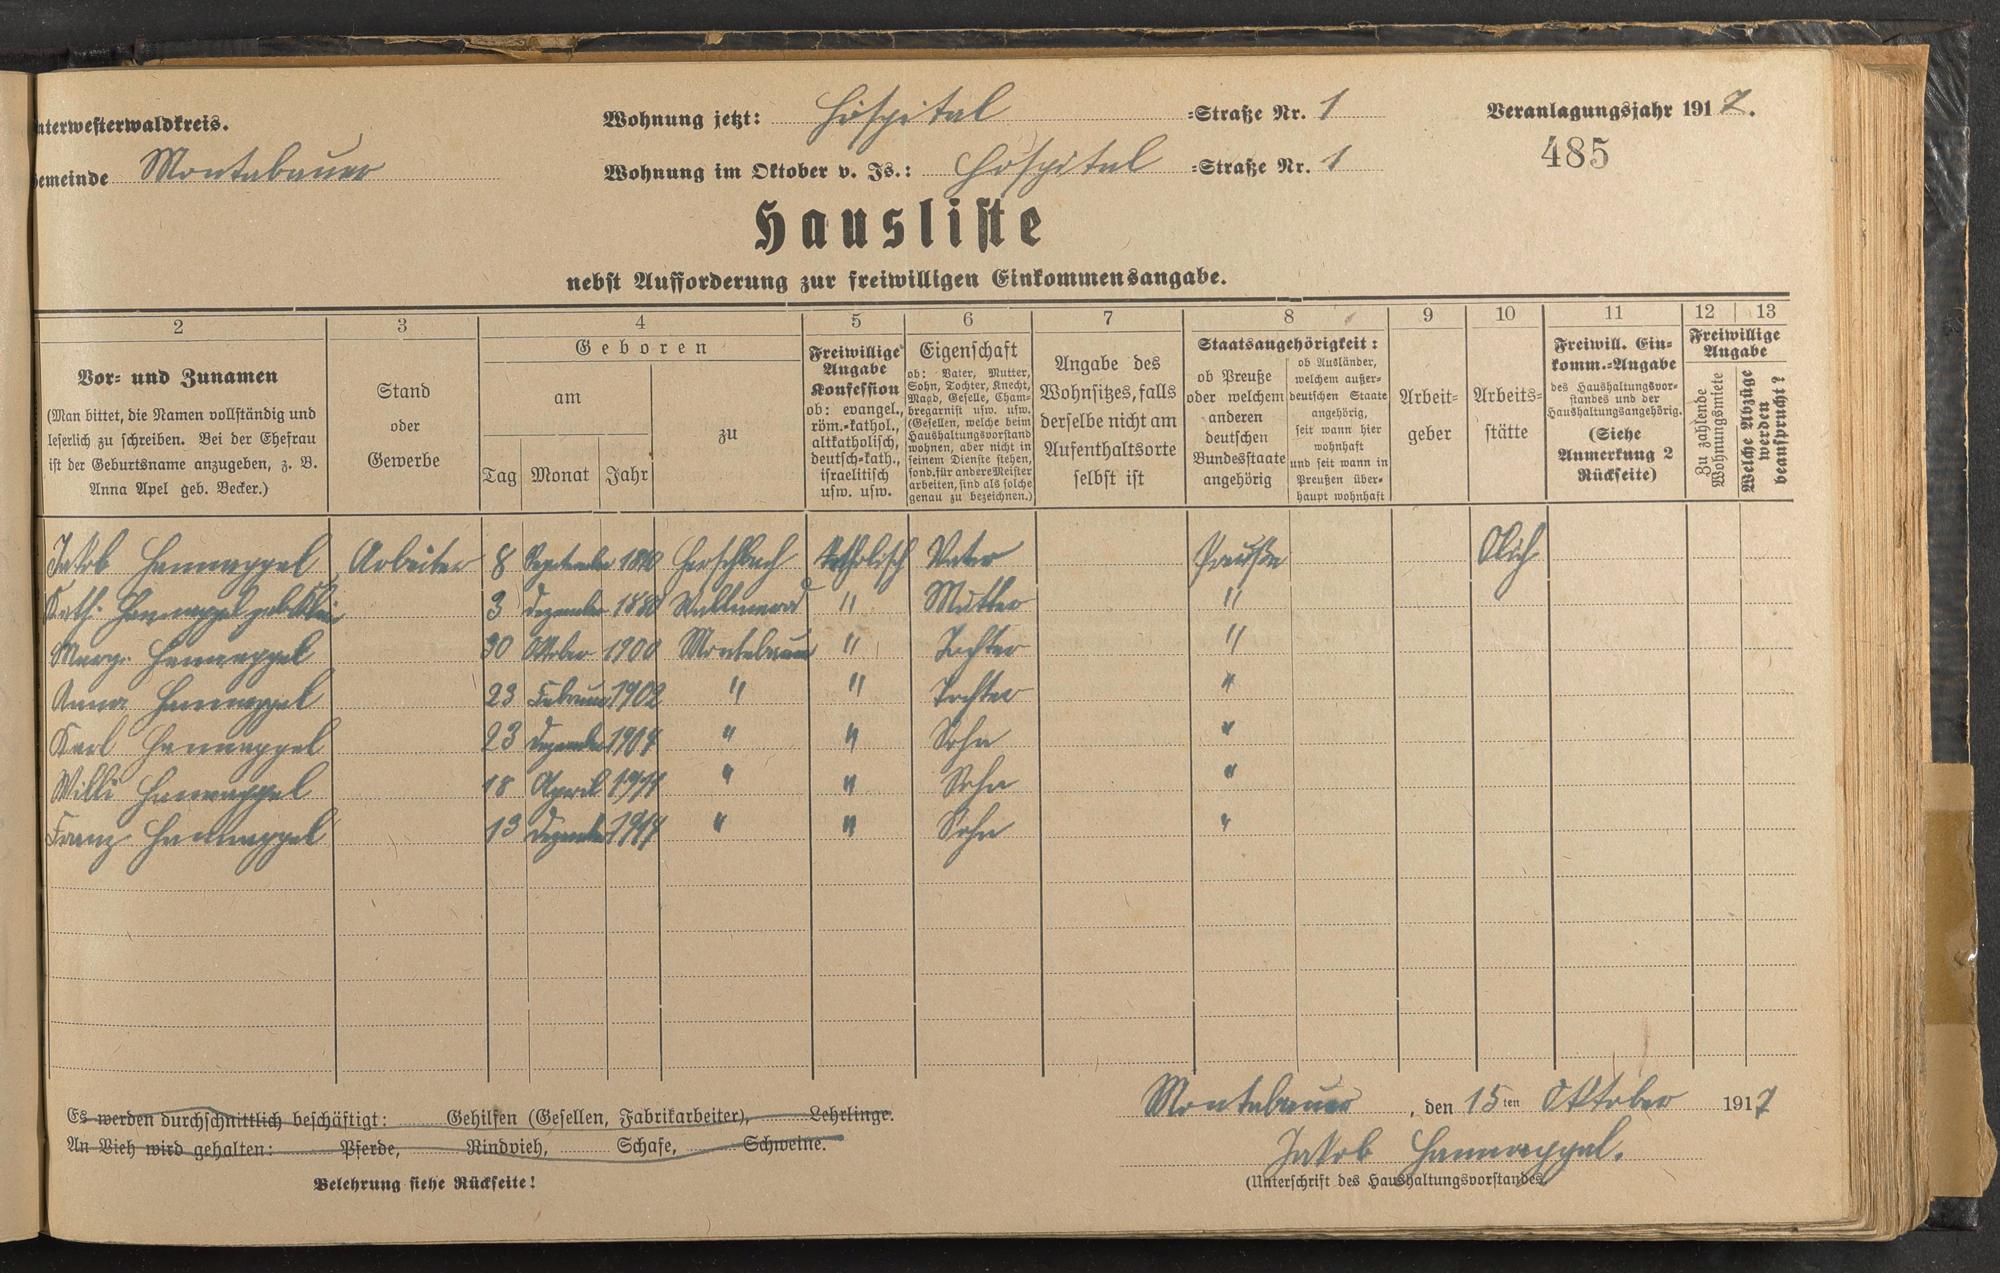 nterwesterwaldkreis.
Wohnung jetzt: Hospital =Straße Nr. 1
Veranlagungsjahr 1917.
emeinde Montabaur
Wohnung im Oktober v. Js.: Hospital =Straße Nr. 1
485
Hausliste
nebst Aufforderung zur freiwilligen Einkommensangabe.
2 3 4 5 6 7 8 9 10 11 12 13
Vor= und Zunamen
(Man bittet, die Namen vollständig und
leserlich zu schreiben. Bei der Ehefrau
ist der Geburtsname anzugeben, z. B.
Anna Apel geb. Becker.)
Stand
oder
Gewerbe
Geboren
am
Tag Monat Jahr
zu
Freiwillige
Angabe
Konfession
ob: evangel.,
röm.=kathol.,
altkatholisch,
deutsch=kath.,
israelitisch
usw. usw.
Eigenschaft
ob: Vater, Mutter,
Sohn, Tochter, Knecht,
Magd, Geselle, Cham=
bregarnist usw. usw.
(Gesellen, welche beim
Haushaltungsvorstand
wohnen, aber nicht in
seinem Dienste stehen,
sond. für andere Meister
arbeiten, sind als solche
genau zu bezeichnen.)
Angabe des
Wohnsitzes, falls
derselbe nicht am
Aufenthaltsorte
selbst ist
Staatsangehörigkeit:
ob Preuße
oder welchem
anderen
deutschen
Bundesstaate
angehörig
ob Ausländer,
welchem außer=
deutschen Staate
angehörig,
seit wann hier
wohnhaft
und seit wann in
Preußen über=
haupt wohnhaft
Arbeit=
geber
Arbeits=
stätte
Freiwill. Ein=
komm.=Angabe
des Haushaltungsvor=
standes und der
Haushaltungsangehörig.
(Siehe
Anmerkung 2
Rückseite)
Freiwillige
Angabe
Zu zahlende
Wohnungsmiete
Welche Abzüge
werden
beansprucht?
Jakob Hannappel Arbeiter 8 September Herschbach Katholisch Vater Preuße
Kath. Hannappel geb. Klein 3 Dezember 1880 " Mutter "
Marg. Hannappel 30 Oktober 1900 Montabaur " Tochter "
Anna Hannappel 23 Februar 1902 " " Tochter "
Karl Hannappel 23 Dezember 1904 " " Sohn "
Willi Hannappel 18 April 1911 " " Sohn "
Franz Hannappel 13 Dezember 1914 " " Sohn "
Es werden durchschnittlich beschäftigt: Gehilfen (Gesellen, Fabrikarbeiter), Lehrlinge.
An Vieh wird gehalten: Pferde, Rindvieh, Schafe, Schweine.
Belehrung siehe Rückseite!
Montabaur, den 15ten Oktober 1917
Jakob Hannappel.
(Unterschrift des Haushaltungsvorstandes